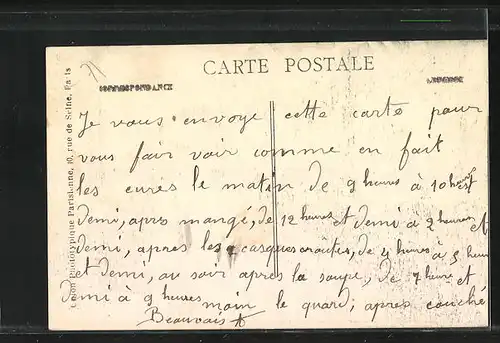 CARTE POSTALE
CORRESPONDANCE
ADRESSE
Union Phototypique Parisienne, 10, rue de Seine, Paris
Je vous envoye cette carte pour
vous fair voir comme en fait
les cures le matin de 9 heures à 10 heures et
demi, apres mangé, de 12 heures et demi à 2 heures et
demi, apres les casques croûtes, de 4 heures à 5 heures
et demi, au soir apres la soupe, de 7 heure et
demi à 9 heures moin le quard; apres couché
Beauvais